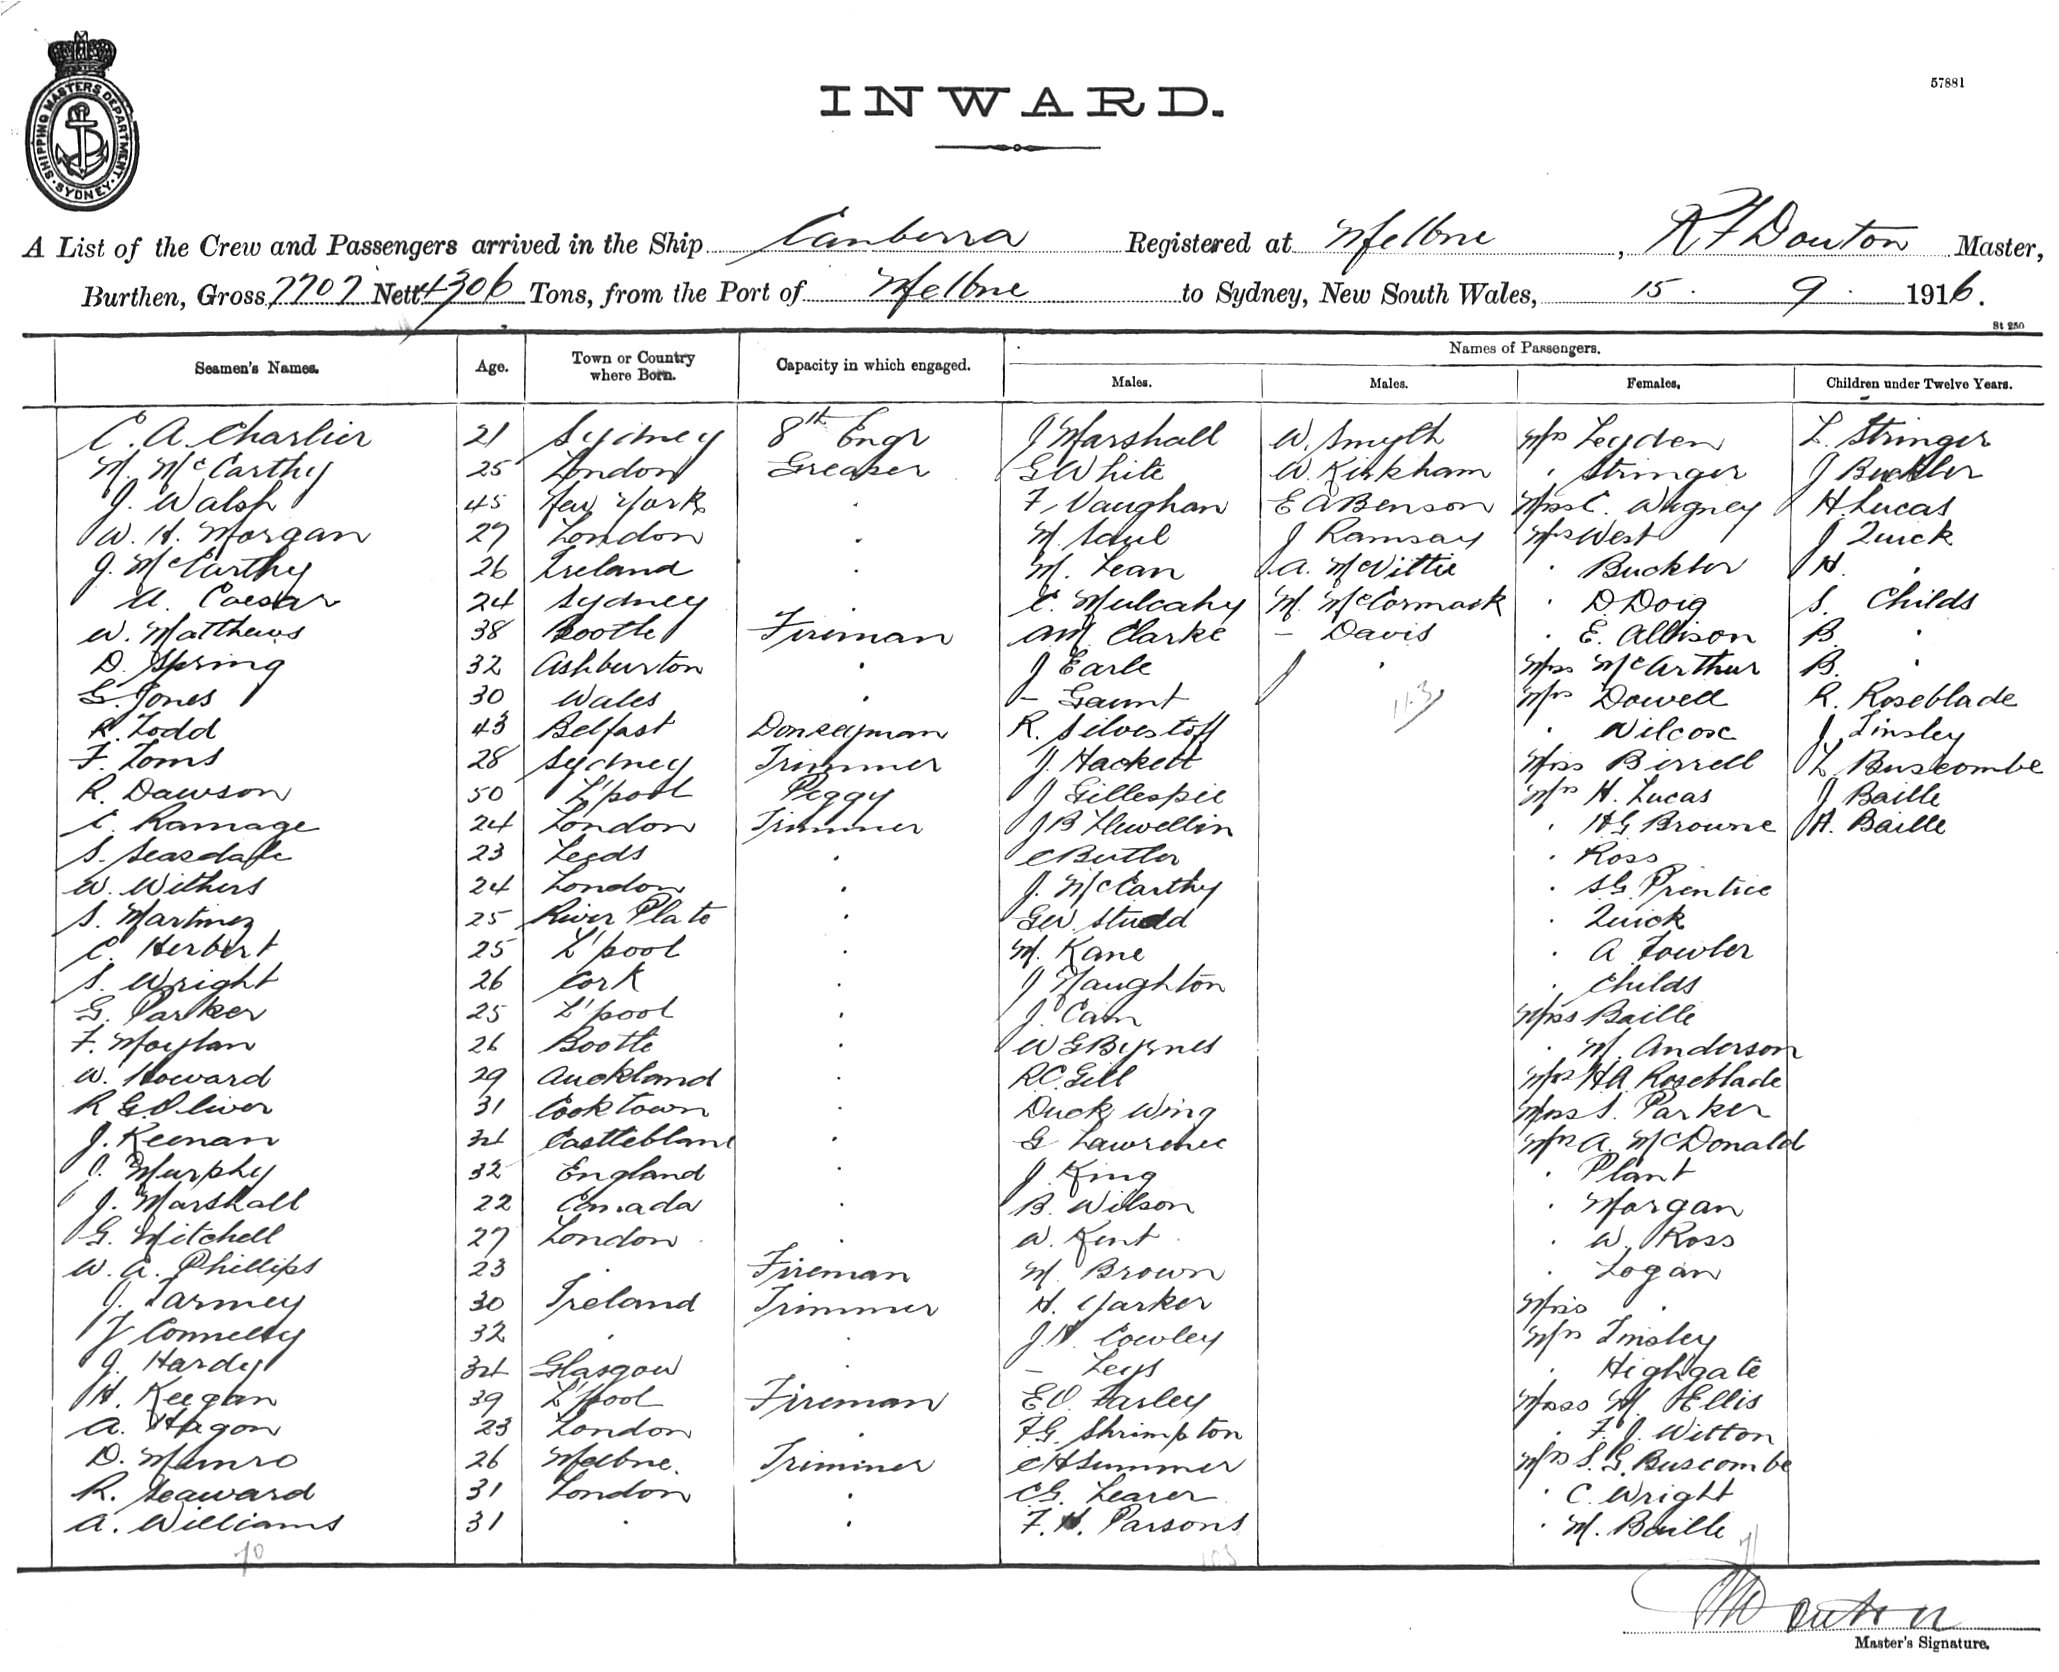 SHIPPING MASTERS DEPARTMENT · SYDNEY ·
INWARD.
57881
A List of the Crew and Passengers arrived in the Ship Canberra Registered at Melbne, R F Douton Master,
Burthen, Gross 7707 Nett 4306 Tons, from the Port of Melbne to Sydney, New South Wales, 15. 9. 1916.
St 250
Seamen's Names. Age. Town or Country where Born. Capacity in which engaged. Names of Passengers.
Males. Males. Females. Children under Twelve Years.
C. A. Charlier 21 Sydney 8th Engr J Marshall W. Smyth Mrs Leyden L. Stringer
M. McCarthy 25 London Greaser G White W. Kirkham . Stringer J Buckler
J. Walsh 45 New York . F. Vaughan E A Benson Miss C. Wagney H. Lucas
W. H. Morgan 27 London . M. Saul J Ramsay Mrs West J Quick
J. McCarthy 26 Ireland . M. Lean A. McVittie . Buckler H. .
A. Caesar 24 Sydney . C. Mulcahy M. McCormack . D. Doig S. Childs
W. Matthews 38 Bootle Fireman A M. Clarke – Davis . E. Allison B. .
D. Spring 32 Ashburton . J Earle J . Miss McArthur B. .
G. Jones 30 Wales . – Gaunt Mrs Dowell R. Roseblade
R. Todd 43 Belfast Donkeyman R. Silvestoff . Wilcox J Tinsley
F. Toms 28 Sydney Trimmer J. Hackett Miss Birrell L. Buscombe
R. Dawson 50 L'pool Peggy J Gillespie Mrs H. Lucas J Baille
C. Ramage 24 London Trimmer J B Llewellin . H G Browne A. Baille
S. Seasdale 23 Leeds . C Butler . Ross
W. Withers 24 London . J. McCarthy . S. G. Prentice
S. Martinez 25 River Plate . Geo. Studd . Quick
C. Herbert 25 L'pool . M. Kane . A Fowler
S. Wright 26 Cork . J Naughton . Childs
G. Parker 25 L'pool . J. Cain Miss Baille
F. Moylan 26 Bootle . W G Byrnes . M. Anderson
W. Howard 29 Auckland . R C. Gill Mrs H A. Roseblade
R G. Oliver 31 Cooktown . Duck Wing Miss S. Parker
J. Keenan 34 Castleblane . G Lawrence Mrs A. McDonald
J. Murphy 32 England . J. King . Plant
J. Marshall 22 Canada . B. Wilson . Morgan
G. Mitchell 27 London . W. Kent . W. Ross
W. A. Phillips 23 . Fireman M. Brown . Logan
J. Tarmey 30 Ireland Trimmer H. Yarker Miss .
J Connelly 32 . . J. H. Cowley Mrs Tinsley
J. Hardy 34 Glasgow . – Leys . Highgate
H. Keegan 39 L'pool Fireman E. O. Farley Miss M. Ellis
A. Hagon 23 London . F G. Shrimpton . F. J. Witton
D. Munro 26 Melbne. Trimmer C H Summer Mrs S. G. Buscombe
R. Seaward 31 London . C G. Learer . C. Wright
A. Williams 31 . . F. H. Parsons . M. Baille
70
Master's Signature.